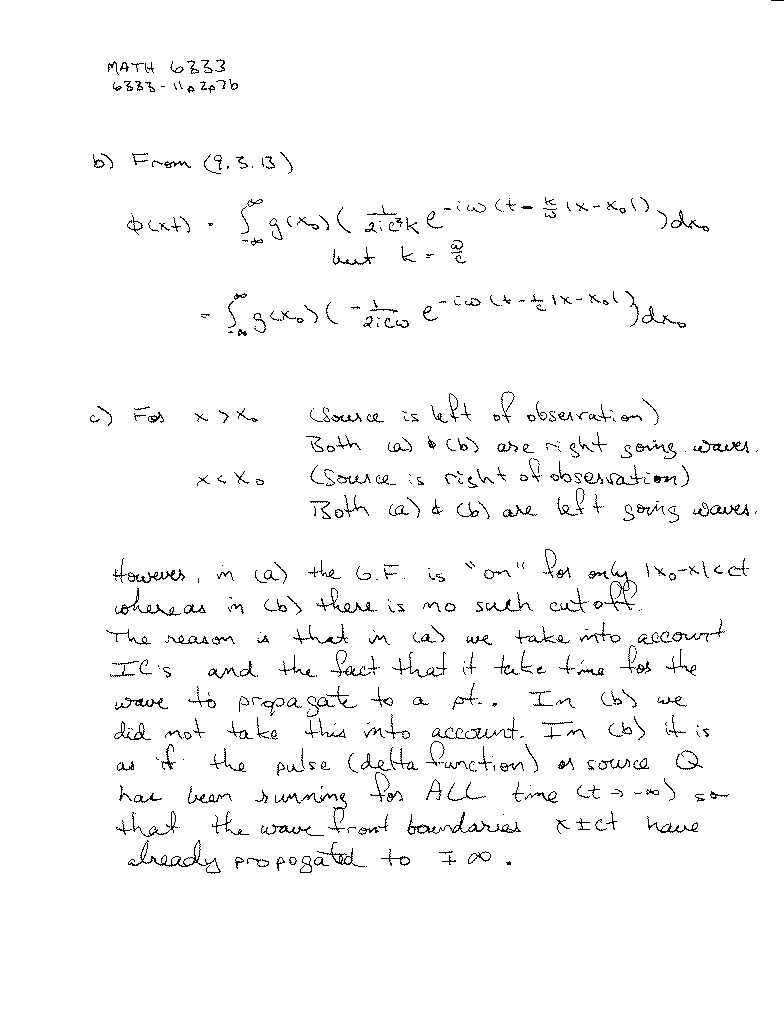 MATH 6333
6333-11p2p7b
b) From (9.3.13)
ϕ(xt) = ∫_{-∞}^{∞} g(x₀) ( 1/(2ic²k) e^{-iω(t - k/ω |x-x₀|)} ) dx₀
but k = ω/c
= ∫_{-∞}^{∞} g(x₀) ( -1/(2icω) e^{-iω(t - 1/c |x-x₀|)} ) dx₀
c) For x > x₀ (Source is left of observation)
Both (a) & (b) are right going waves.
x < x₀ (Source is right of observation)
Both (a) & (b) are left going waves.
However, in (a) the G.F. is "on" for only |x₀-x|<ct
whereas in (b) there is no such cutoff.
The reason is that in (a) we take into account
IC's and the fact that it take time for the
wave to propagate to a pt.. In (b) we
did not take this into account. In (b) it is
as if the pulse (delta function) or source Q
has been running for ALL time (t → -∞) so
that the wave front boundaries x±ct have
already propogated to ∓∞.